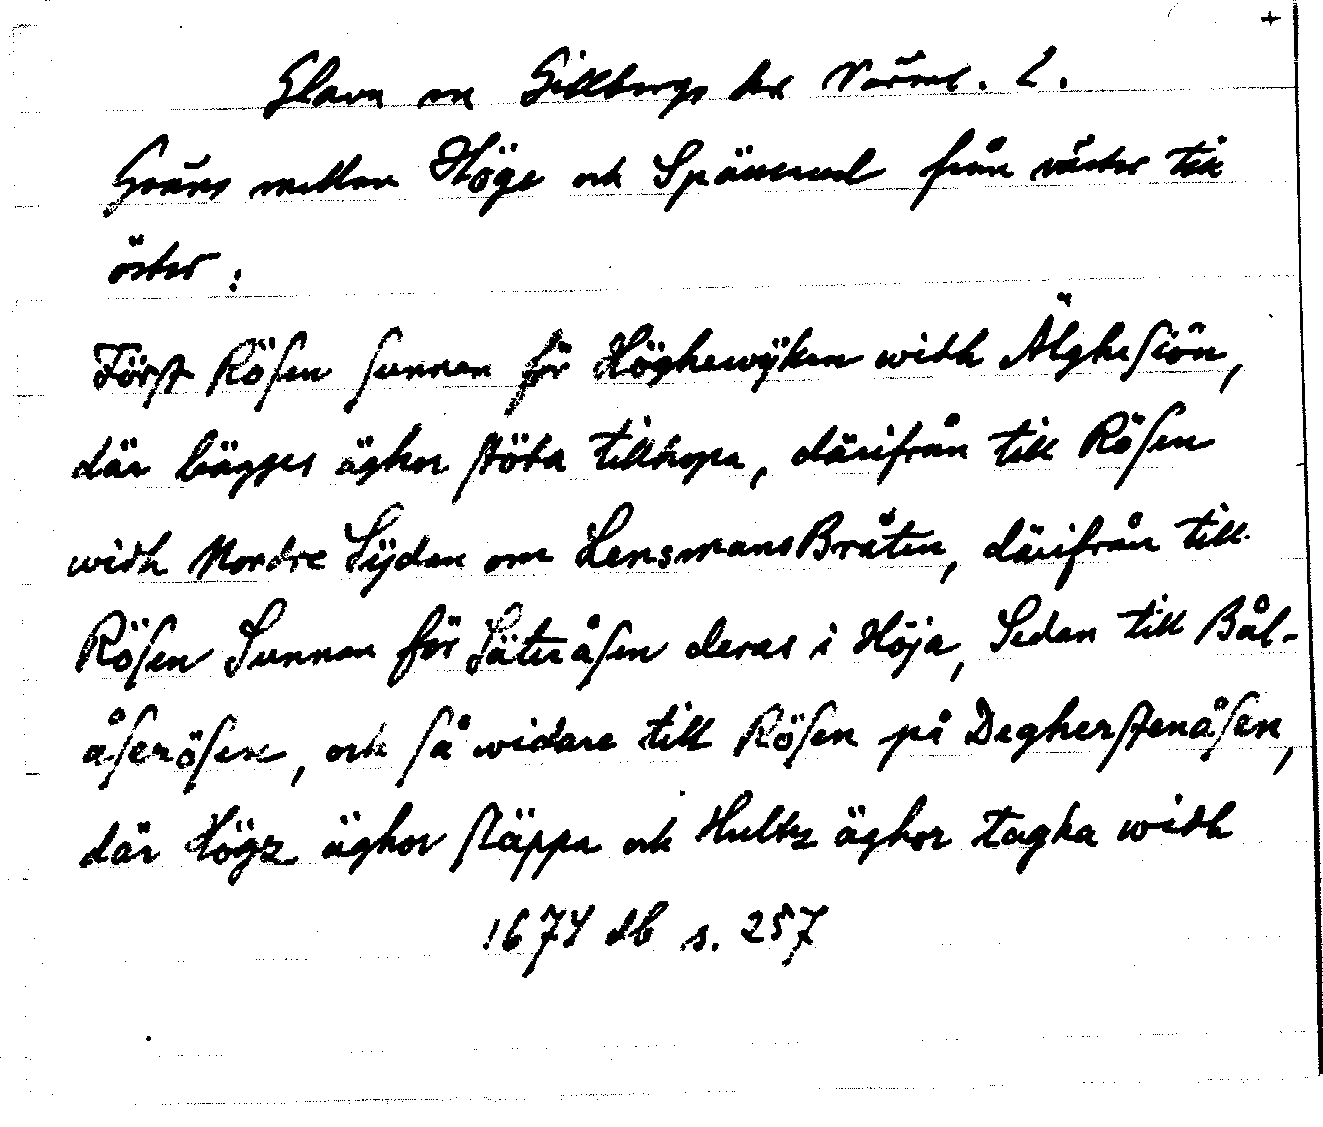 +
Glava sn Gillbergs hd Värml. L.
Gräns mellan Höge och Spässerud från väster till
öster:
Först Rösen sunnan för Höghewÿken widh Älghesiön,
där bägges äghor stöta tillhopa, därifrån till Rösen
widh Nordre Sÿdan om LensmansBråten, därifrån till
Rösen Sunnan för Säteråsen deras i Höja, Sedan till Bål-
åserösen, och så widare till Rösen på Degherstenåsen,
där Högz äghor släppa och Hultz äghor tagha widh
1674 db s. 257